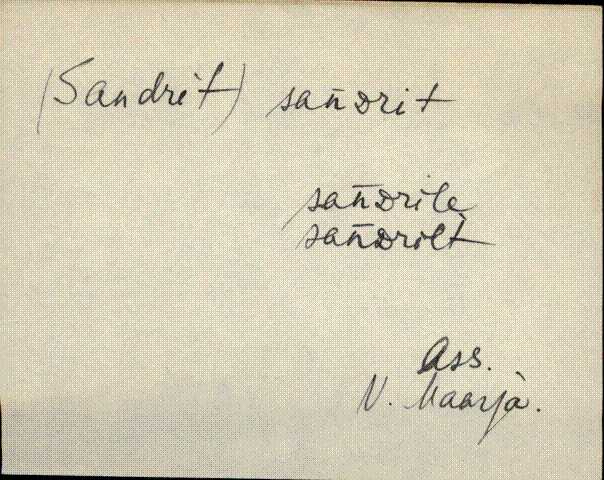 (Sandrit) san̄ᴅrit
san̄ᴅrile
san̄ᴅrilt
Ass.
V. Maarja.